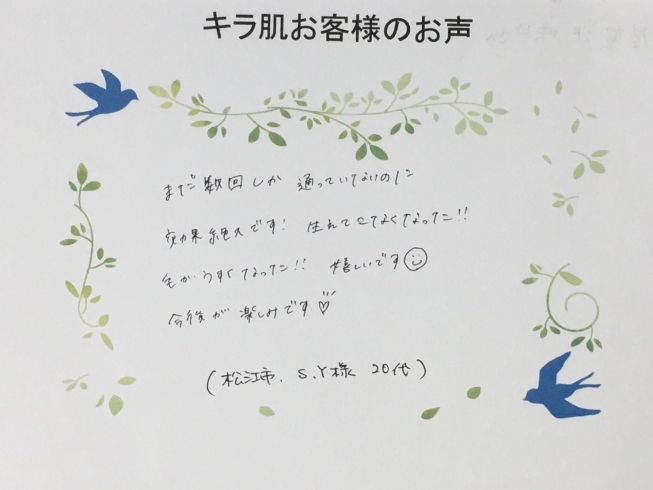 キラ肌お客様のお声
まだ数回しか通っていないのに
効果絶大です! 生えてこなくなった!!
毛がうすくなった!! 嬉しいです☺
今後が楽しみです♡
(松江市. S.Y様 20代)